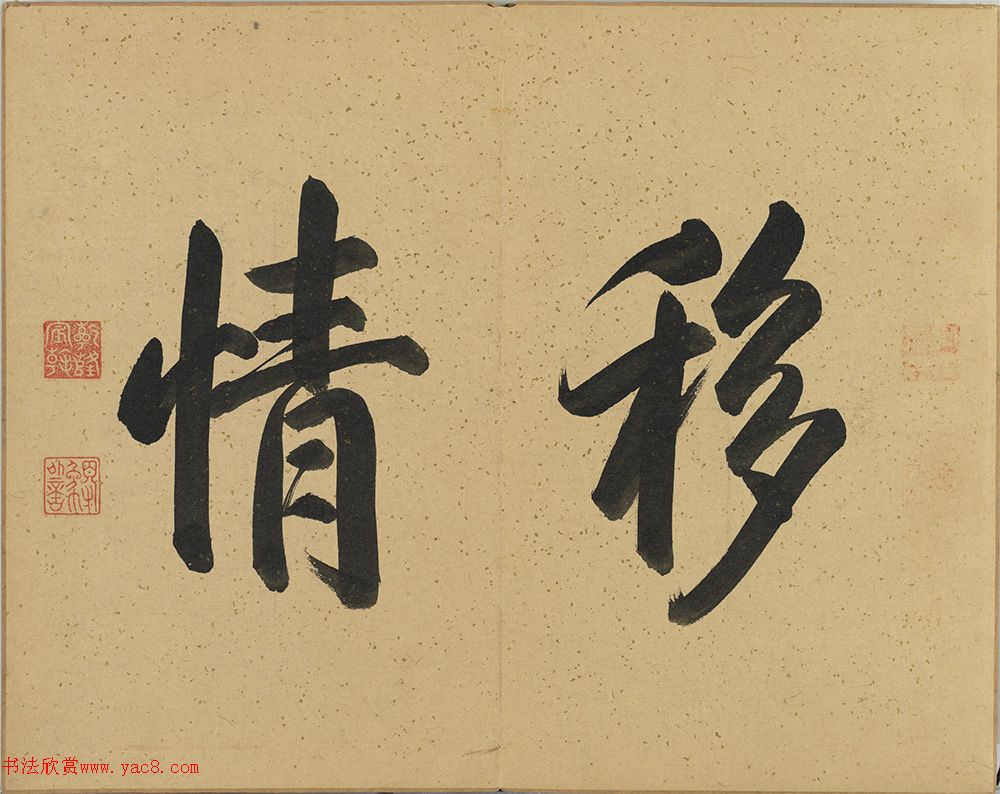 移情
乾隆宸翰
书法欣赏www.yac8.com